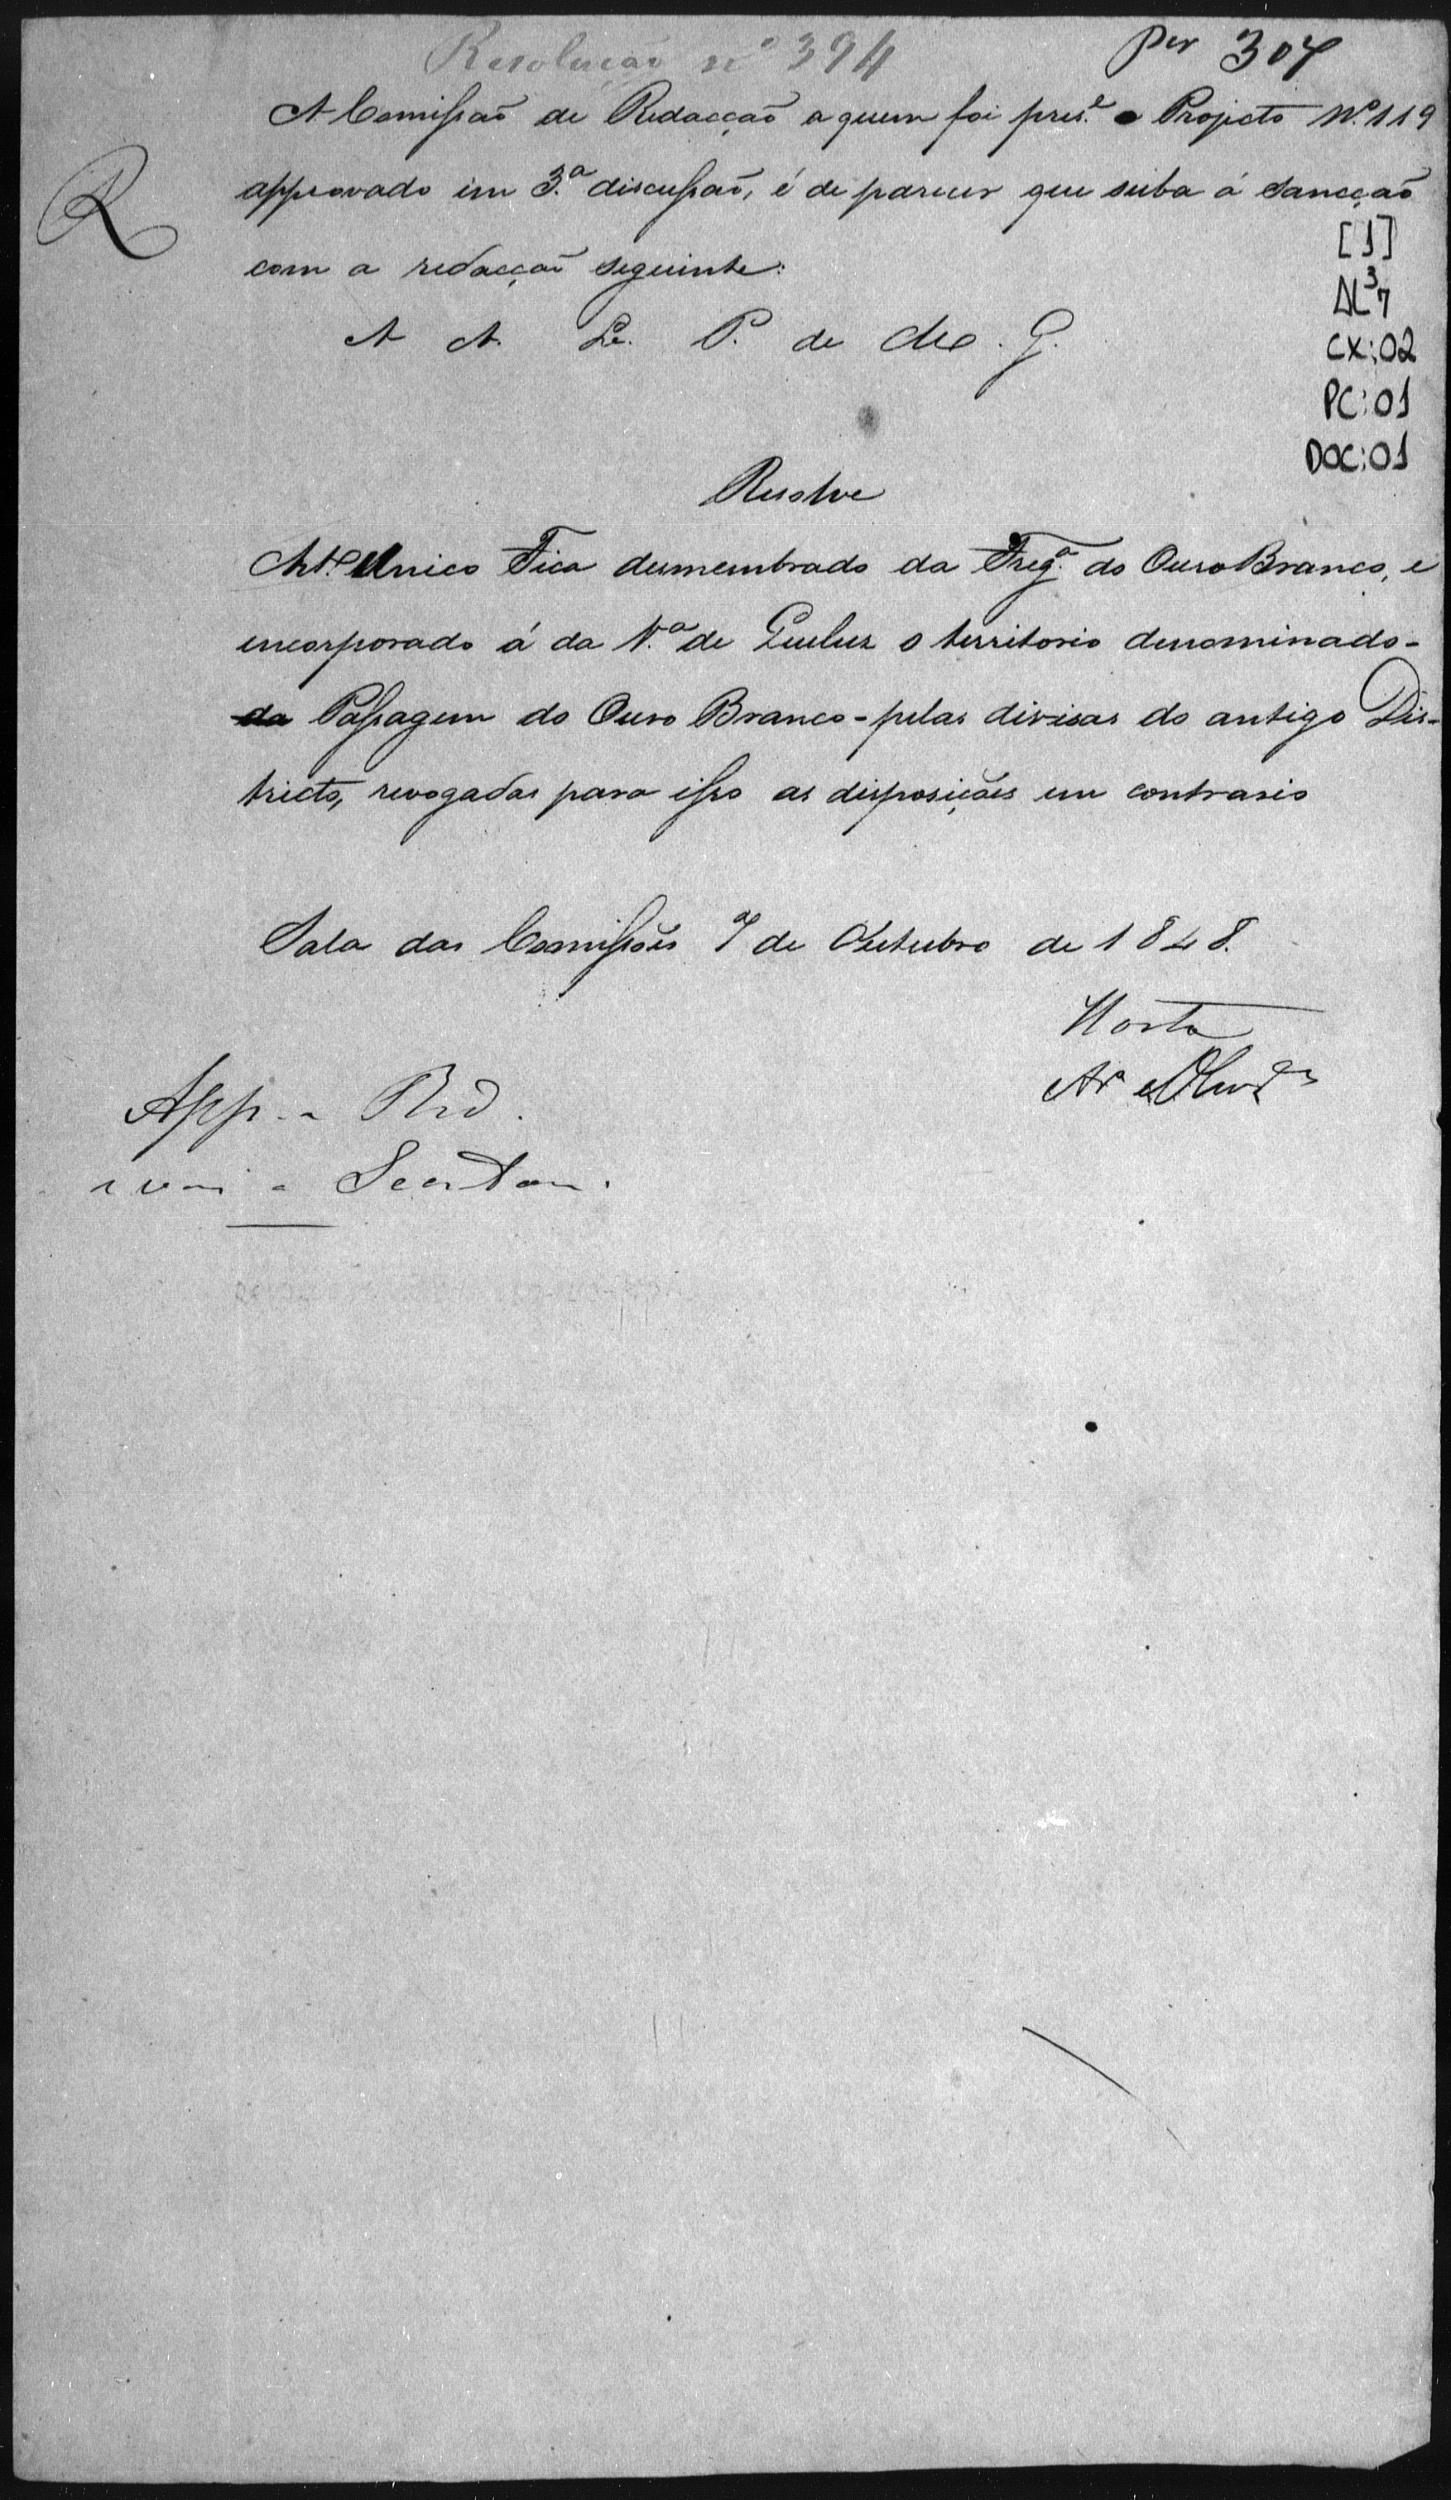 Resolução nº 394
per 307
A Comissaõ de Redacçaõ a quem foi pres.e o Projecto N.º 119
R
approvado em 3.ª discussaõ, é de parecer que suba á Sancçaõ
com a redacçaõ seguinte:
[1]
AL 3/7
A A. Le. P. de M. G.
CX:02
PC:01
DOC:01
Resolve
Art.º Unico Fica desmembrado da Freg.ª do Ouro Branco, e
incorporado á da V.ª de Queluz o territorio denominado-
da Passagem do Ouro Branco-pelas divisas do antigo Dis-
tricto, revogadas para isso as disposiçoẽs em contrario
Sala das Comissoẽs 7 de Outubro de 1848.
Horta
App. a Red.